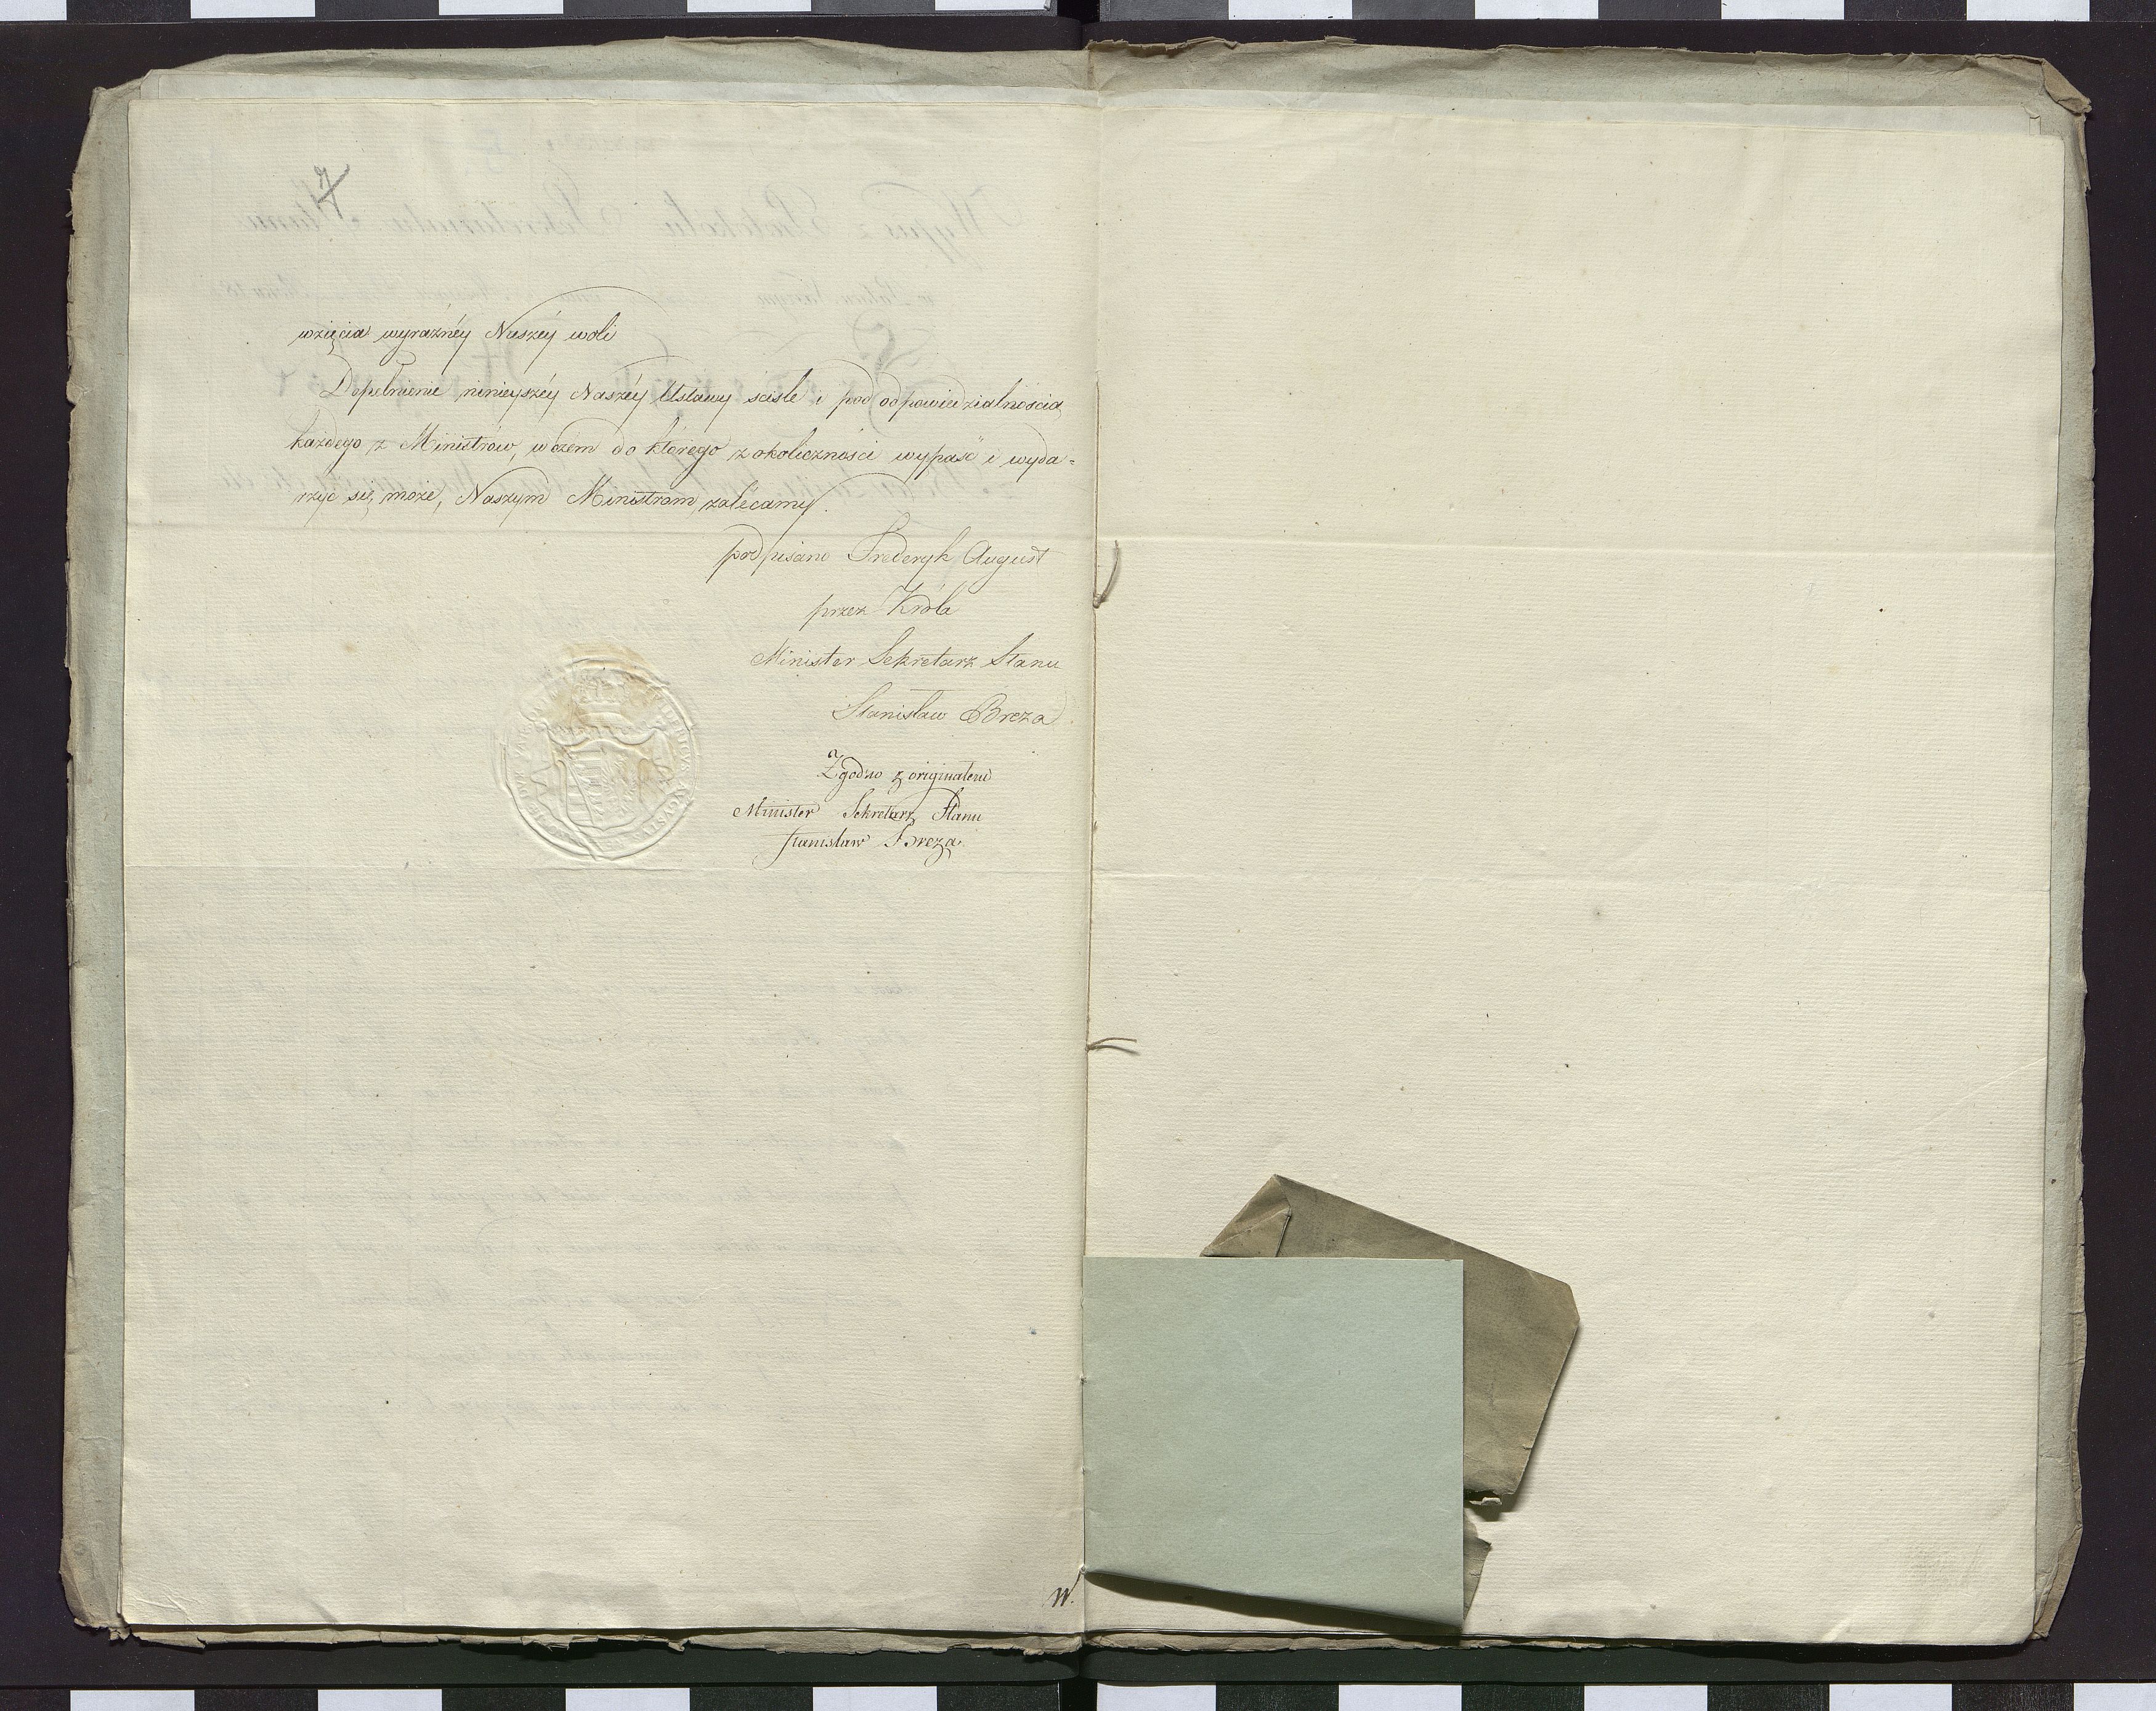 7
wzięcia wyraźnéy Naszéy woli
Dopełnienie ninieyszéy Naszéy Ustawy ściśle i pod odpowiedzialnością
każdego z Ministrów, w czem do którego z okoliczności wypaść i wyda=
rzyć się może, Naszym Ministrom zalécamy.
podpisano Frederyk August
przez Króla
Minister Sekretarz Stanu
Stanisław Breza.
Zgodno z originałem
Minister Sekretarz Stanu
Stanisław Breza.
W.